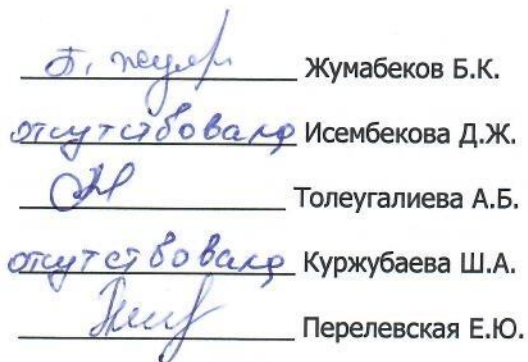 Жумабеков Б.К.
отсутствовала Исембекова Д.Ж.
Толеугалиева А.Б.
отсутствовала Куржубаева Ш.А.
Перелевская Е.Ю.